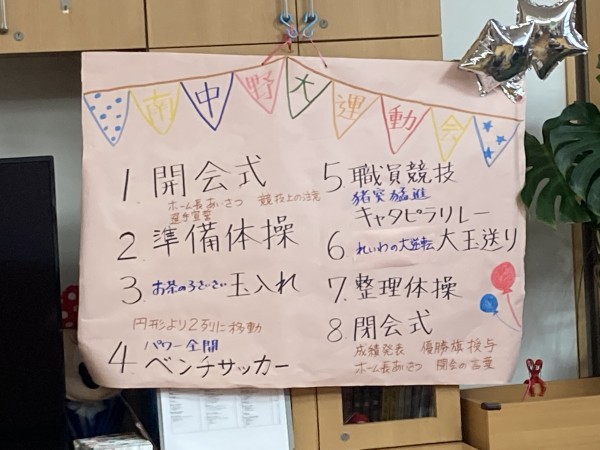 南中野大運動会
1. 開会式
ホーム長あいさつ 競技上の注意
選手宣誓
2. 準備体操
3. お茶のこさいさい 玉入れ
円形より2列に移動
4. パワー全開
ベンチサッカー
5. 職員競技
猪突猛進
キャタピラリレー
6. れいわの大逆転 大玉送り
7. 整理体操
8. 閉会式
成績発表 優勝旗授与
ホーム長あいさつ 閉会の言葉